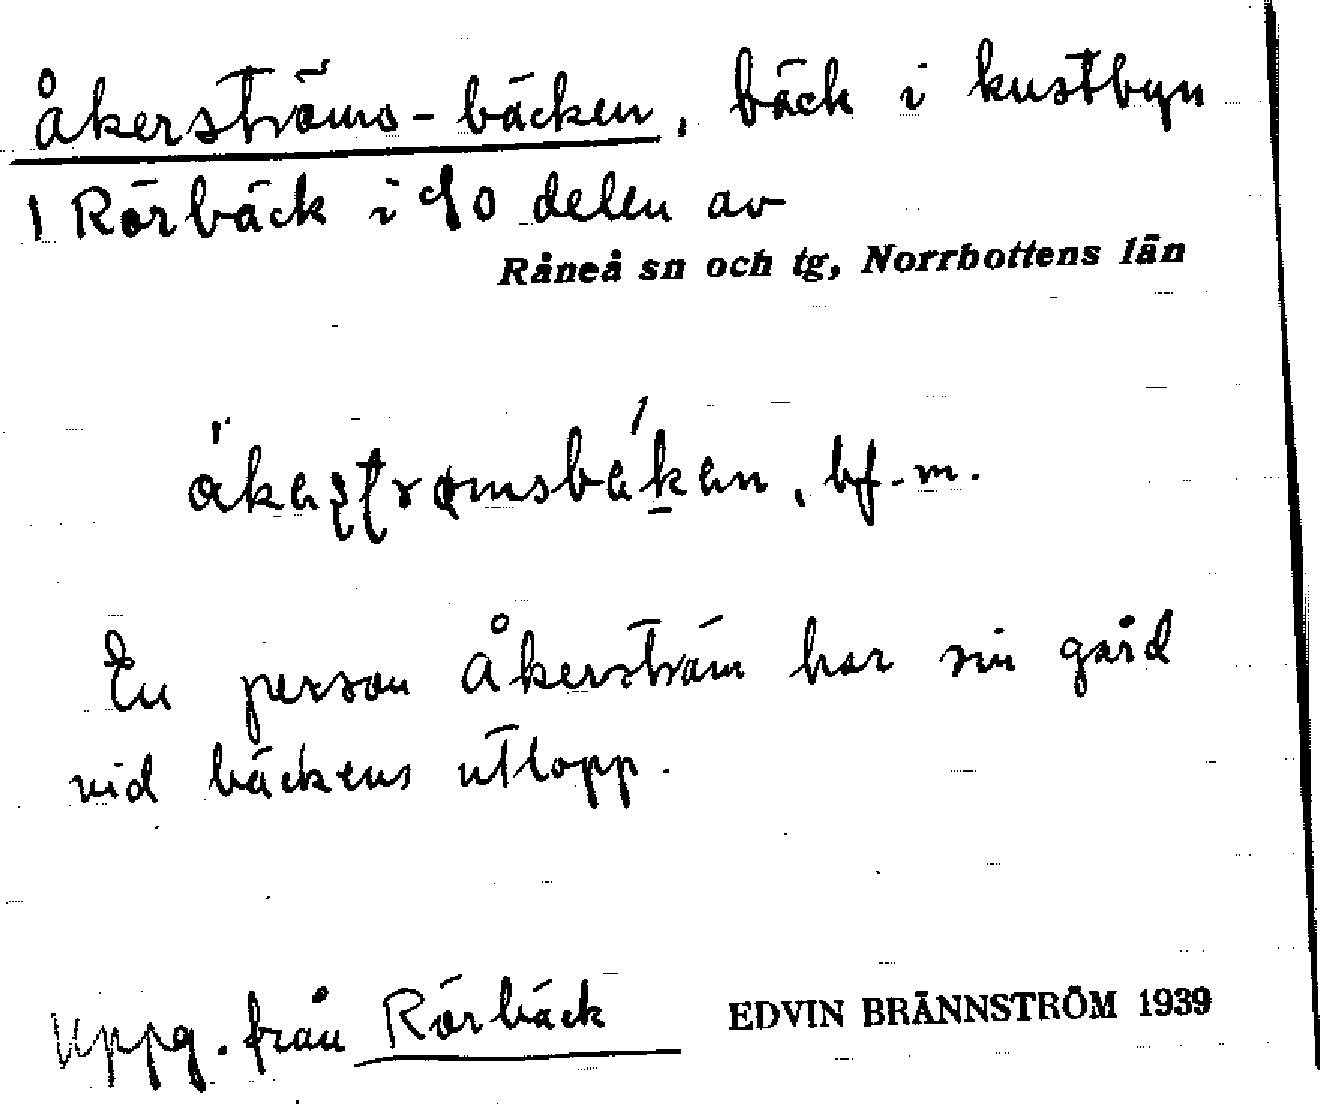 Åkerströms-bäcken, bäck i kustbyn
1 Rörbäck i SO delen av
Råneå sn och tg, Norrbottens län
bf. m.
En person Åkerström har sin gård
vid bäckens utlopp.
Uppg. från Rörbäck
EDVIN BRÄNNSTRÖM 1939